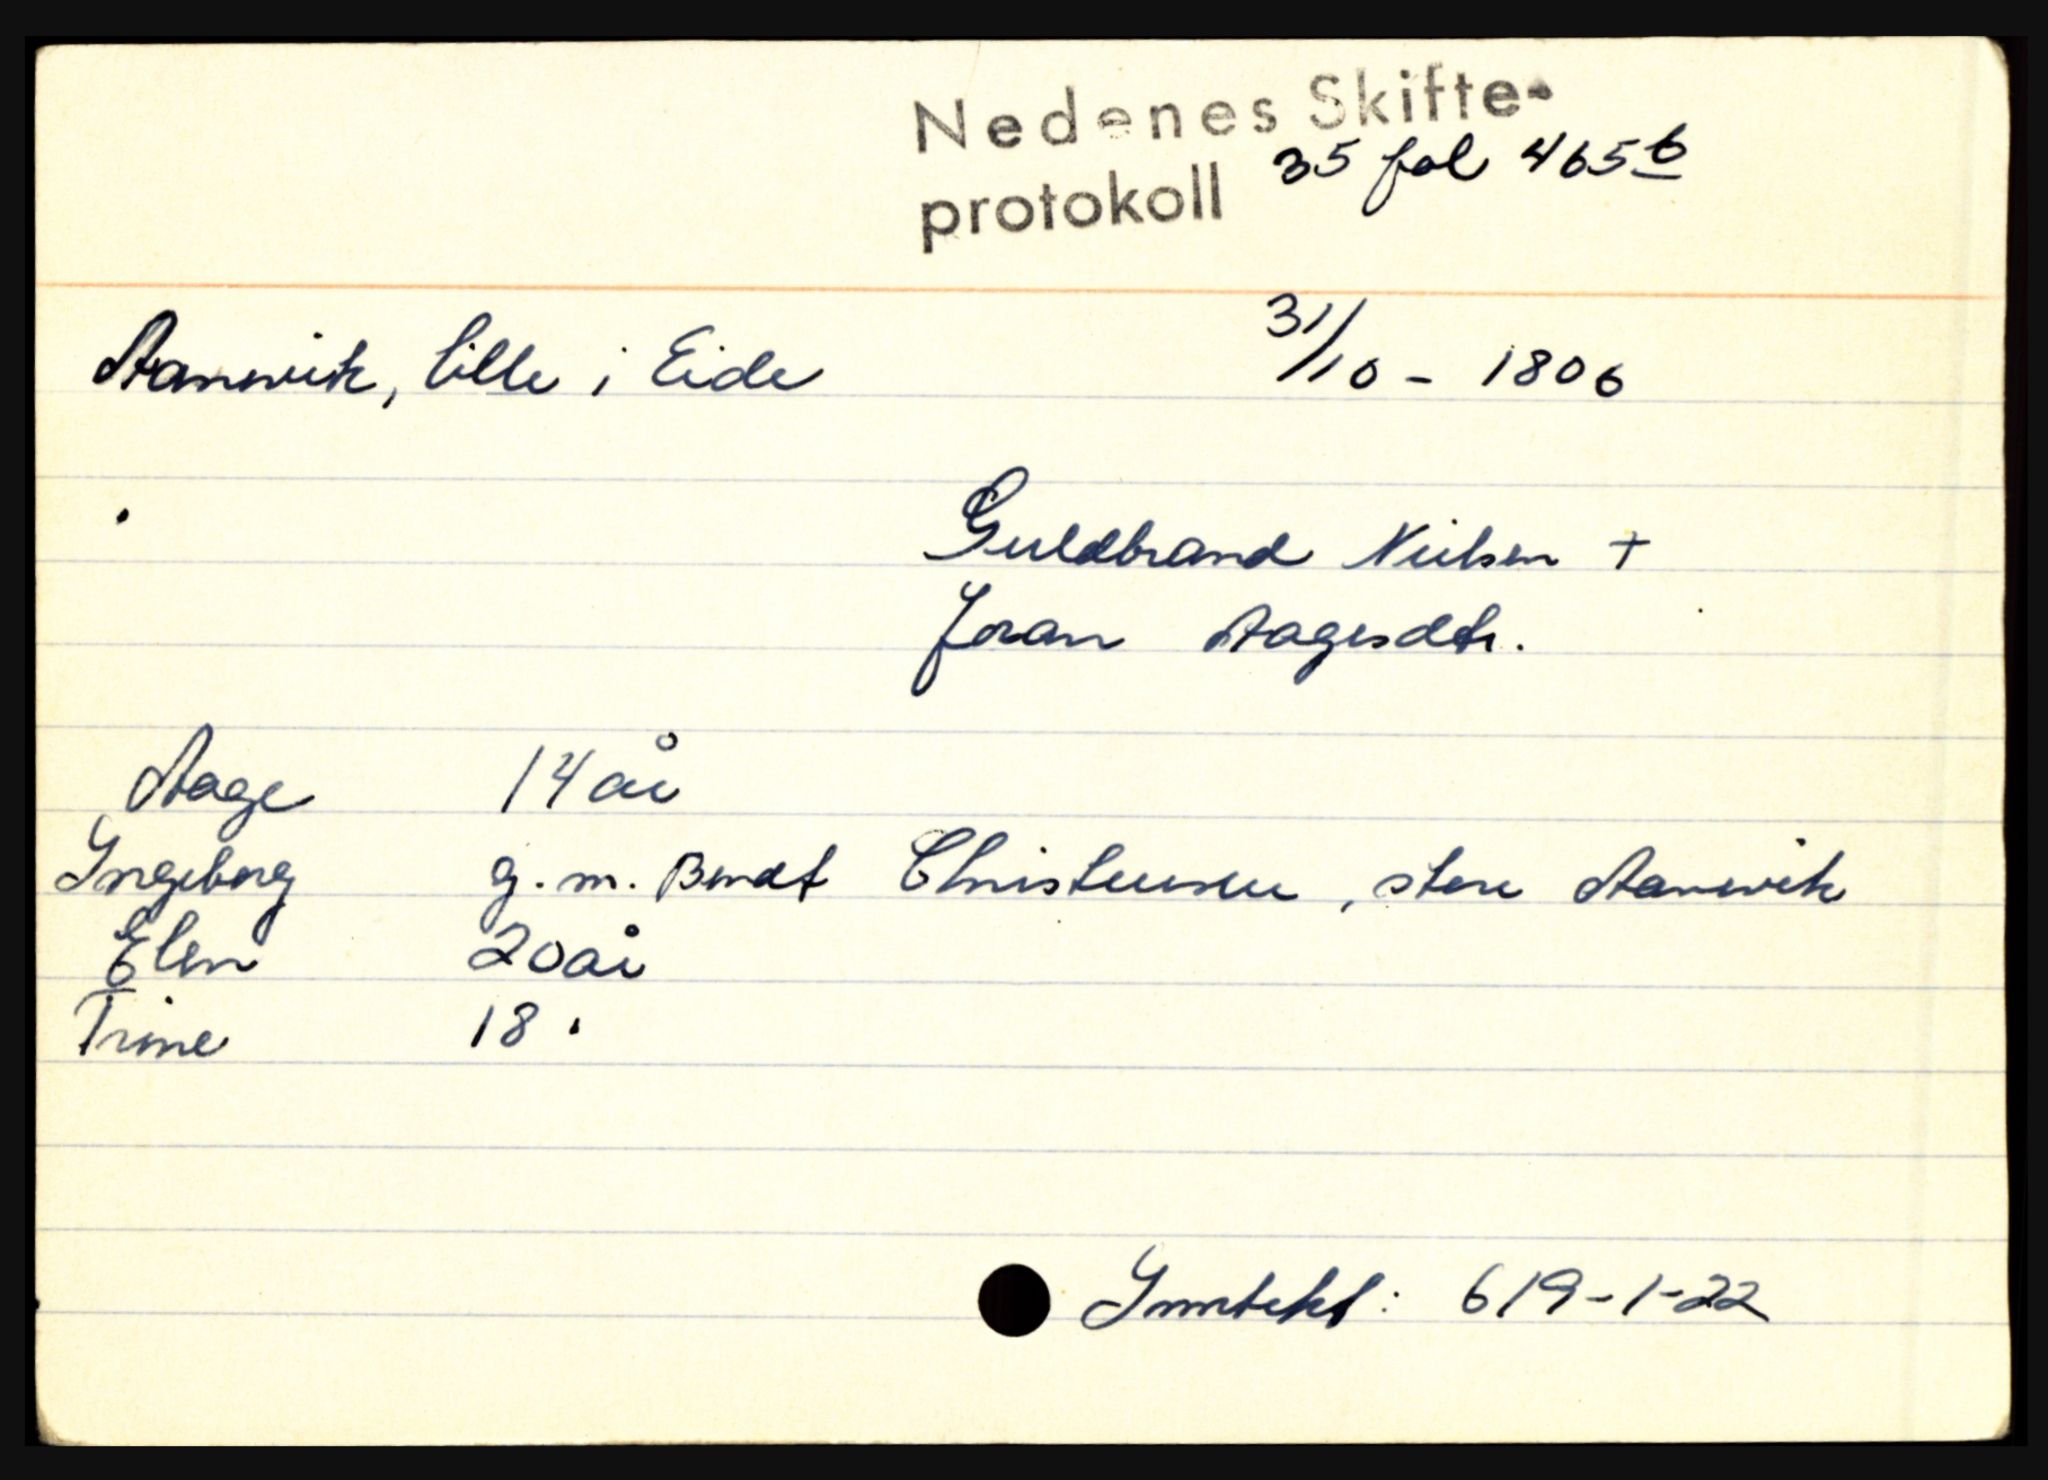 Nedenes Skifte-
protokoll 35 fol 465 b
Aamwik, lille i Eide 31/10 - 1806
Guldbrand Nielsen +
Joran Aagesdtr.
Aage 14 år
Ingeborg g. m. Bendt Christensen, store Aamwik
Elen 20 år
Trine 18 "
Inntekt: 619-1-22